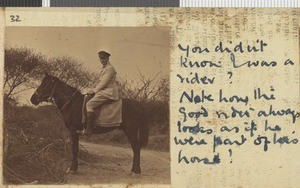 32
You didn't
know I was a
rider?
Note how the
good rider always
looks as if he
were part of his
horse!